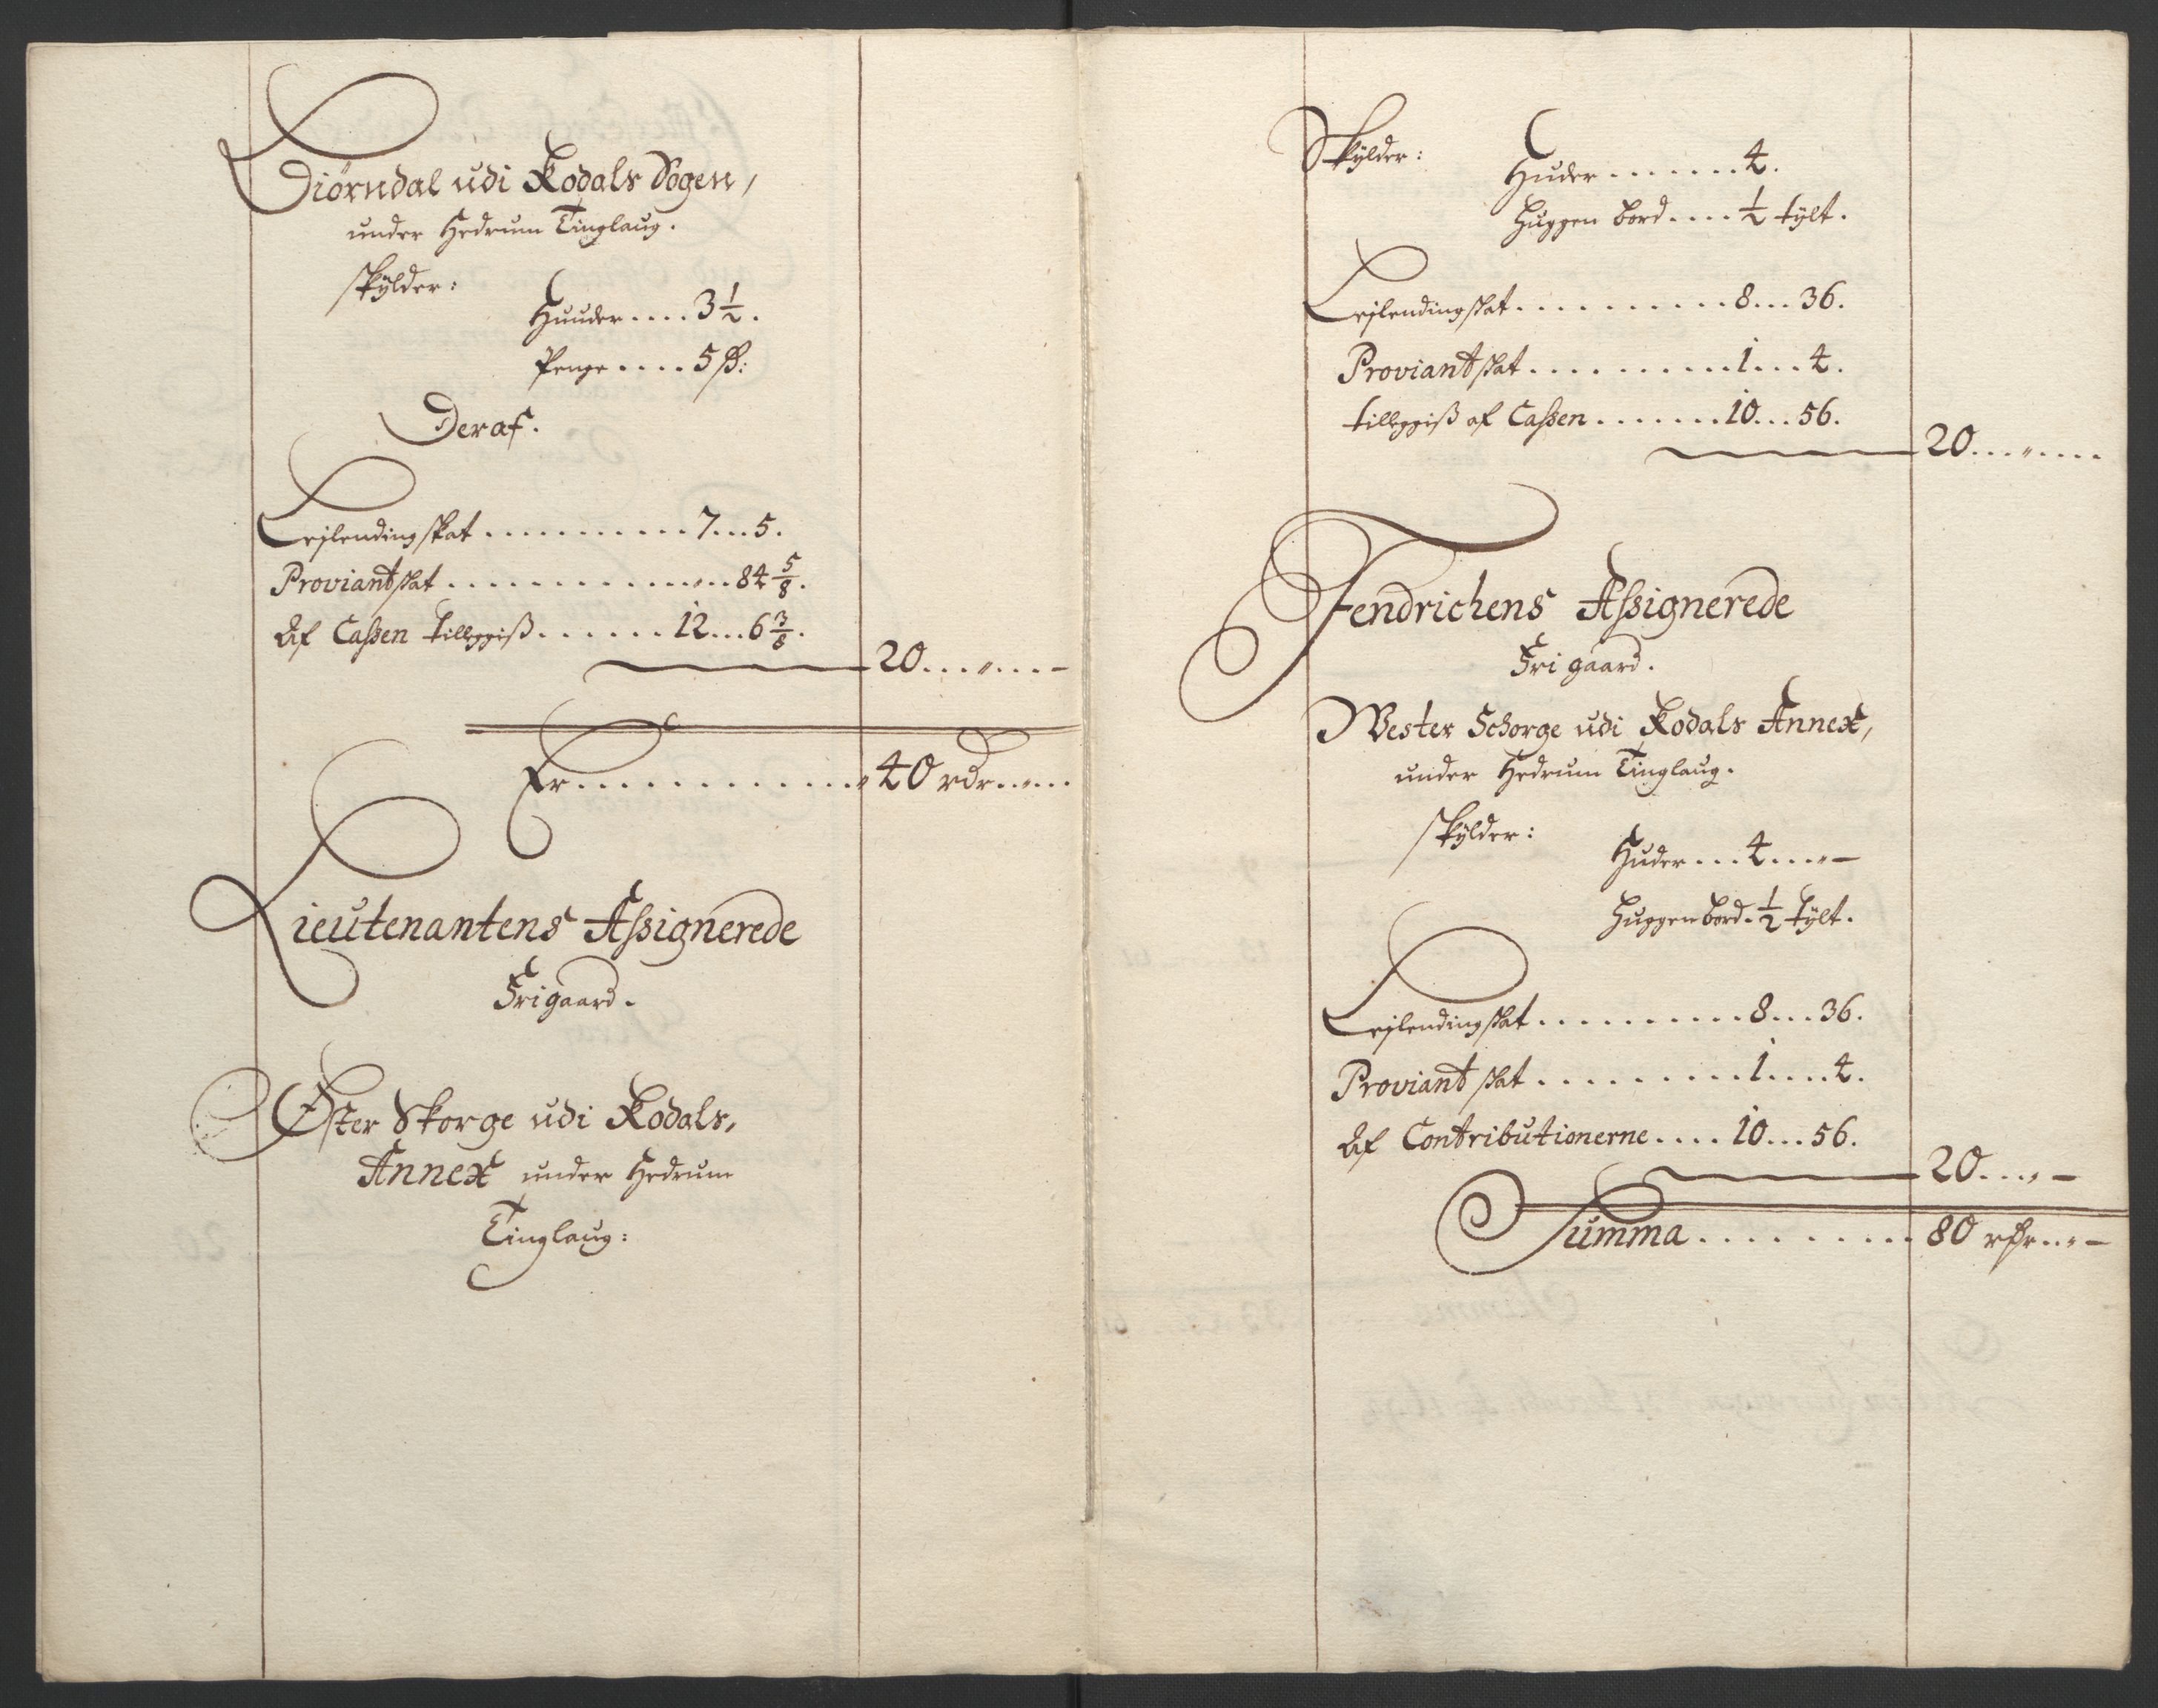 Diörndal udi Kodals Sogen,
under Hedrum Tinglaug.
skÿlder:
Huuder .... 3½.
Penge .... 5 ß:
Deraf.
Lejlendingskat .......... 7 ... 5.
Proviantskat .............„... 84 5/8.
Af Cassen tilleggis ....... 12 ... 6 3/8.
20 ....„....-
Er .............. 40 rdr..„...
Lieutenantens Assignerede
Frigaard.
Øster Skorge udi Kodals,
Annex under Hedrum
Tinglaug:
Skÿlder:
Huder ....... 4.
Huggen bord .... ½ tÿlt.
Lejlendingskat .......... 8 ... 36.
Proviantskat .......... 1 ... 4.
tilleggis af Cassen ....... 10 ... 56.
20 ...„....
Fendrichens Assignerede
Fri gaard.
Wester Schorge udi Kodals Annex,
under Hedrum Tinglaug.
skÿlder:
Huder ... 4 ...„-
Huggen bord . ½ tÿlt.
Lejlendingskat .......... 8 ... 36.
Proviant skat .......... 1 .... 4.
Af Contributionerne .... 10 ... 56.
20 ...„-
Summa ......... 80 rdr..„-